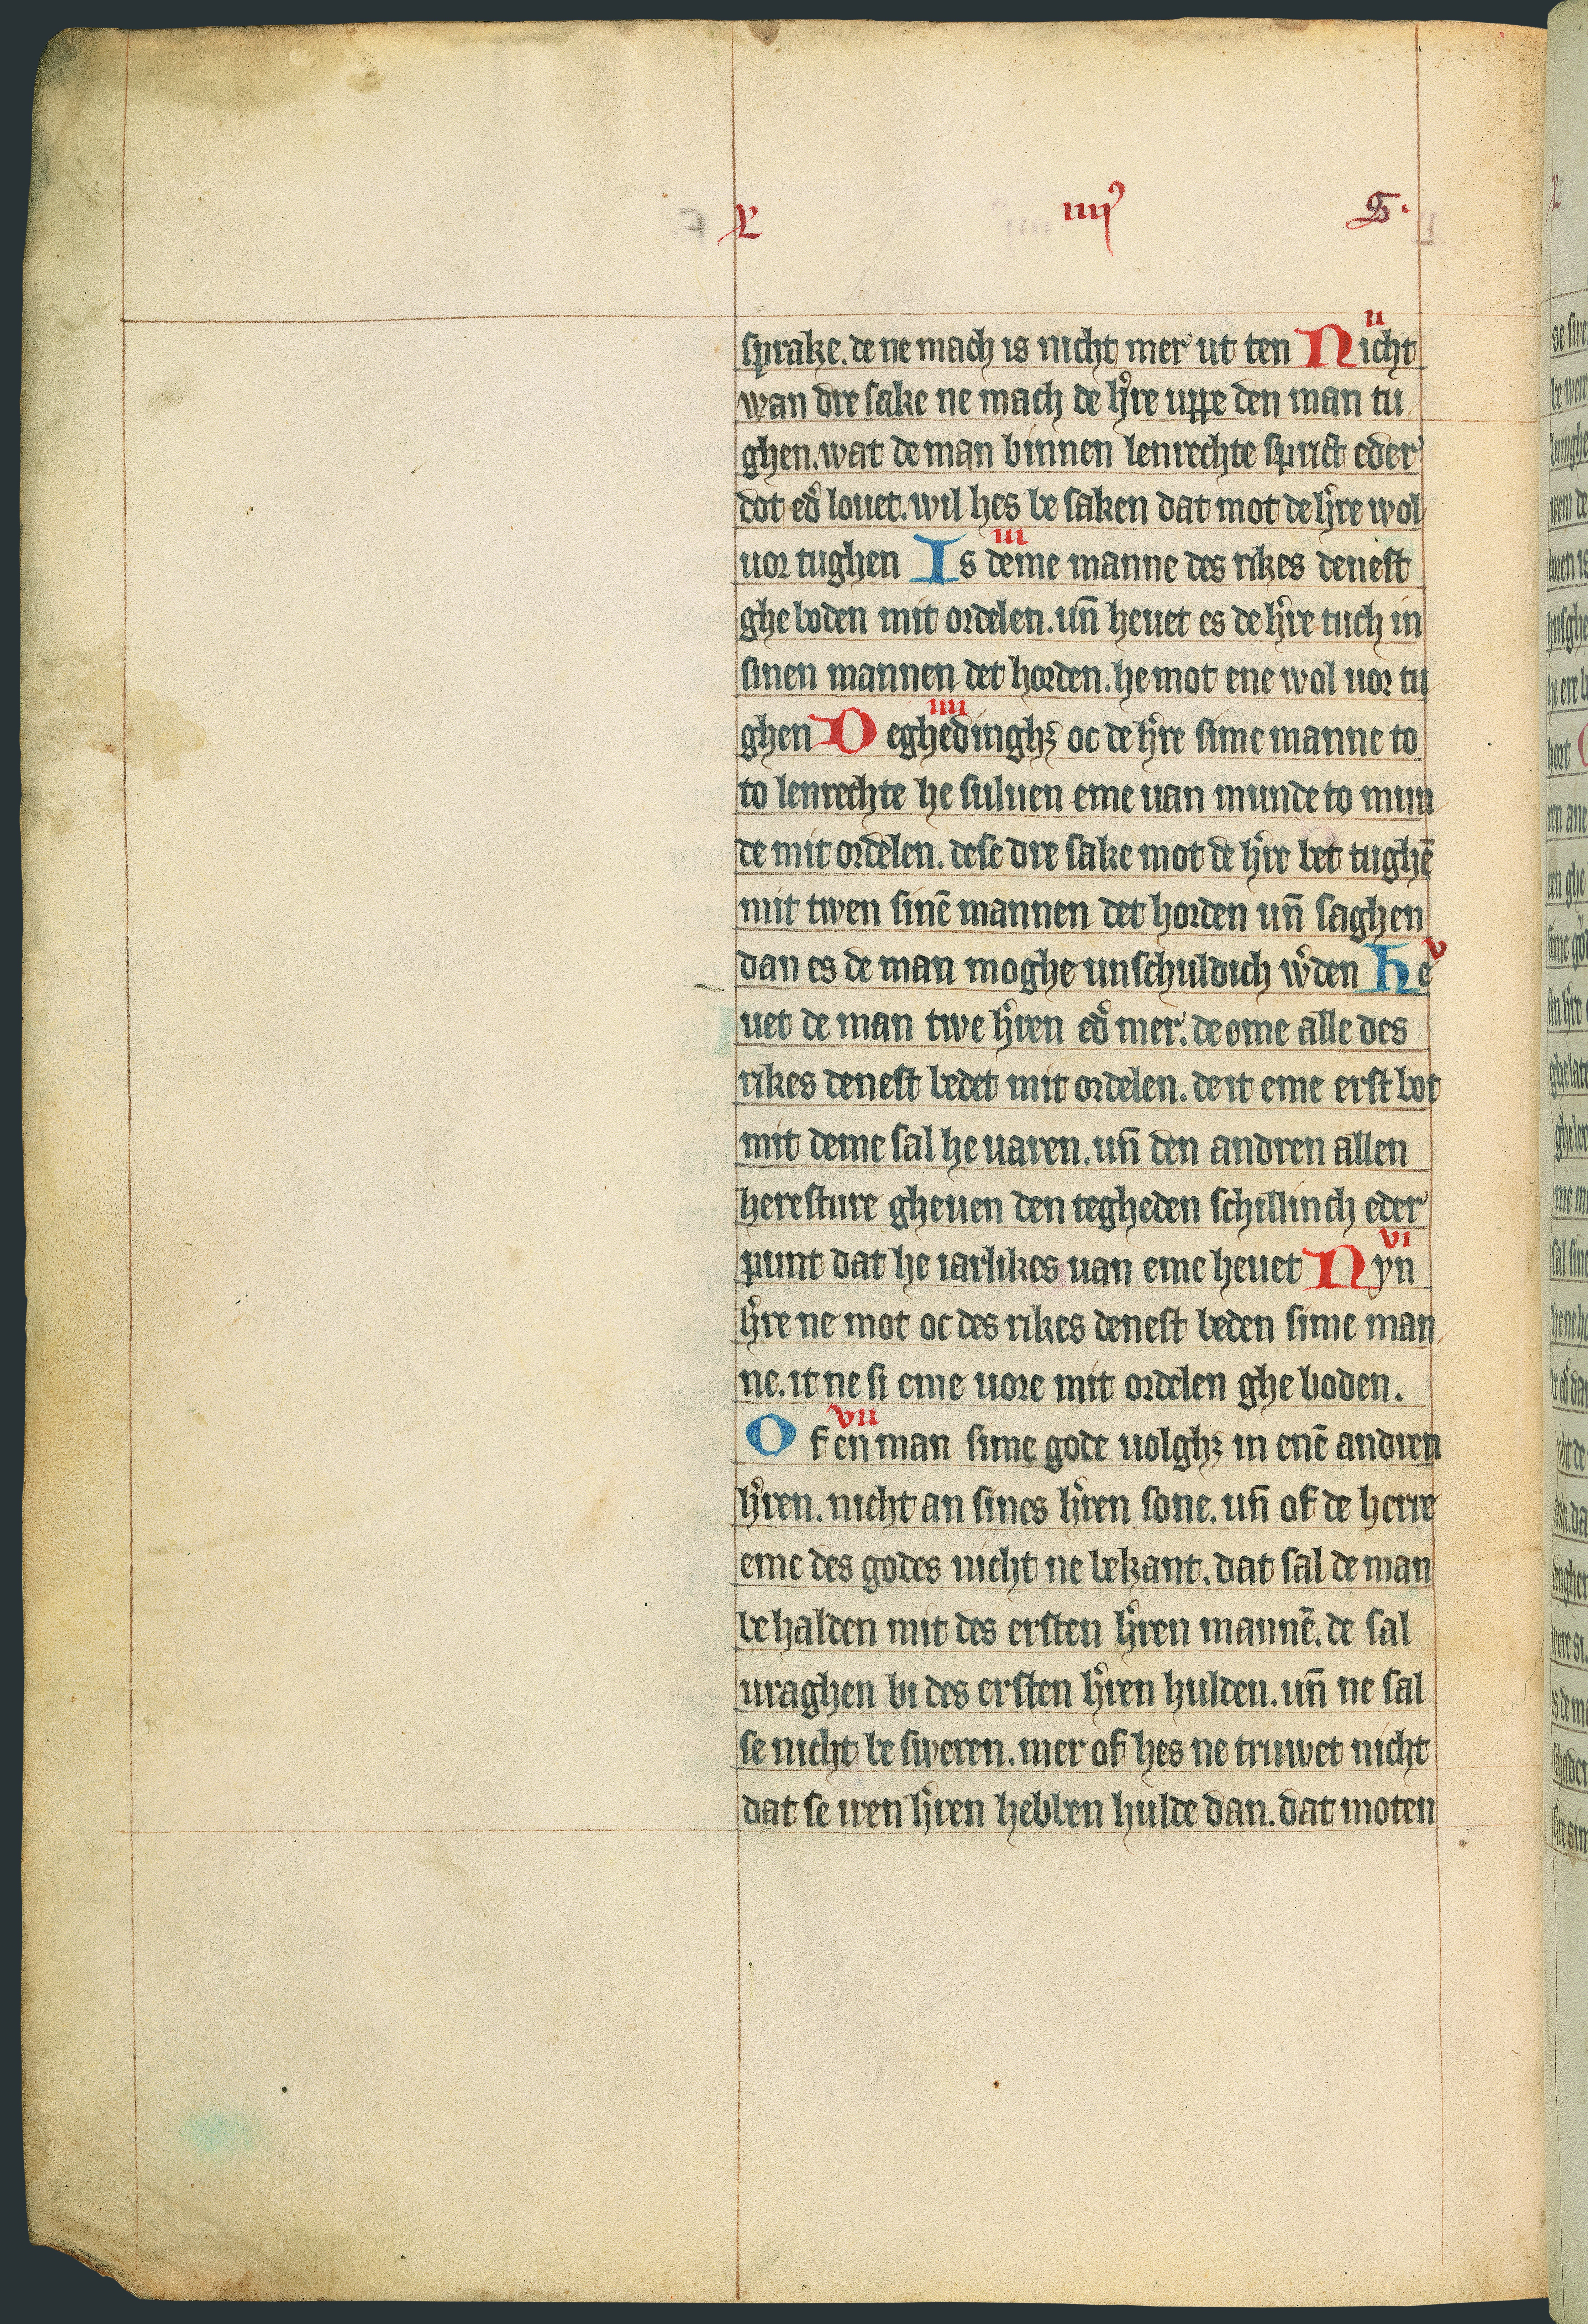 L iiij⁹ S.
sprake. de ne mach is nicht mer ut ten Nicht
ii
wan dre sake ne mach de h're uppe den man tu
ghen. wat de man binnen lenrechte sprict eder
dot ed' louet. wil hes be saken dat mot de h're wol
uor tughen Is deme manne des rikes denest
iii
ghe boden mit ordelen. un̄ heuet es de h're tuch in
sinen mannen det horden. he mot ene wol uor tu
ghen Deghedinghꝫ oc de h're sime manne to
iiii
to lenrechte he suluen eme uan munde to mun
de mit ordelen. dese dre sake mot de h're bet tughē
mit twen sinē mannen det horden un̄ saghen
dan es de man moghe unschuldich w'den he
v
uet de man twe h'ren ed' mer. de ome alle des
rikes denest bedet mit ordelen. de it eme erst bot
mit deme sal he uaren. un̄ den andren allen
heresture gheuen den tegheden schillinch eder
punt dat he iarlikes uan eme heuet Nyn
vi
h're ne mot oc des rikes denest beden sime man
ne. it ne si eme uore mit ordelen ghe boden.
Of en man sime gode uolghꝫ in enē andren
vii
h'ren. nicht an sines h'ren sone. un̄ of de herre
eme des godes nicht ne bekant. dat sal de man
be halden mit des ersten h'ren mannē. de sal
uraghen bi des ersten h'ren hulden. un̄ ne sal
se nicht be sweren. mer of hes ne truwet nicht
dat se iren h'ren hebben hulde dan. dat moten